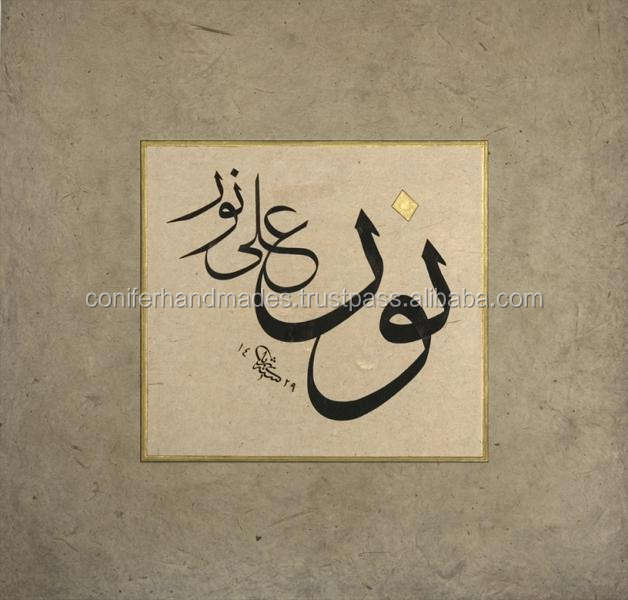 نور
على نور
coniferhandmades.trustpass.alibaba.com
١٤ ٢٩